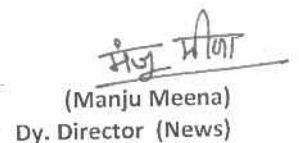 मंजू मीणा
(Manju Meena)
Dy. Director (News)